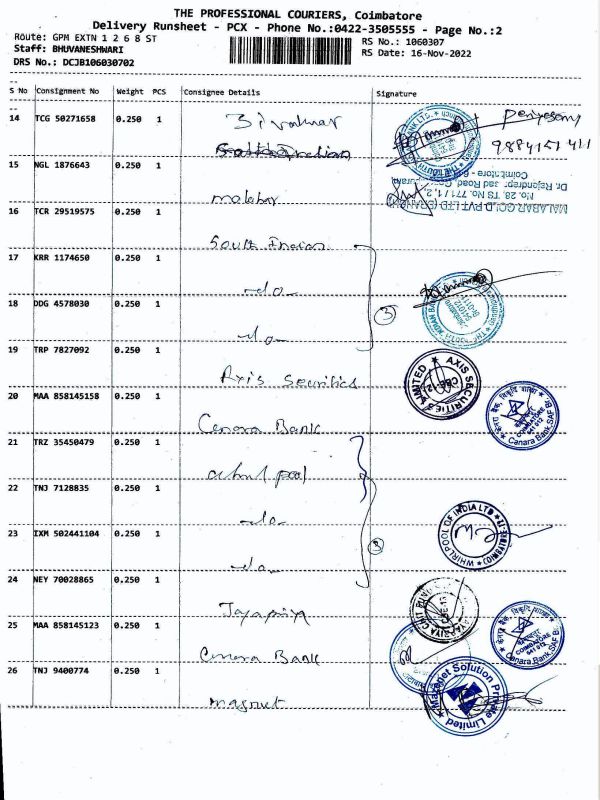 THE PROFESSIONAL COURIERS, Coimbatore
Delivery Runsheet - PCX - Phone No.:0422-3505555 - Page No.:2
Route: GPM EXTN 1 2 6 8 ST
RS No.: 1060307
Staff: BHUVANESHWARI
RS Date: 16-Nov-2022
DRS No.: DCJB106030702
S No Consignment No Weight PCS Consignee Details Signature
14 TCG 50271658 0.250 1
9884151411
15 NGL 1876643 0.250 1 malabar
MALABAR GOLD PVT LTD (BRANCH)
No. 28, TS No. 771/1, 2,
Coimbatore
16 TCR 29519575 0.250 1 South Indian
17 KRR 1174650 0.250 1 -do-
18 DDG 4578030 0.250 1 -do-
3
19 TRP 7827092 0.250 1 Axis Securities
AXIS SECURITIES LIMITED
20 MAA 858145158 0.250 1 Canara Bank
COIMBATORE
641 012
Canara Bank SAF Br.
21 TRZ 35450479 0.250 1
22 TNJ 7128835 0.250 1 -do-
23 IXM 502441104 0.250 1 -do-
WHIRLPOOL OF INDIA LTD
24 NEY 70028865 0.250 1 Jayapriya
25 MAA 858145123 0.250 1 Canara Bank
COIMBATORE
641 012
Canara Bank SAF Br.
26 TNJ 9400774 0.250 1 magnet
Solution Private Limited